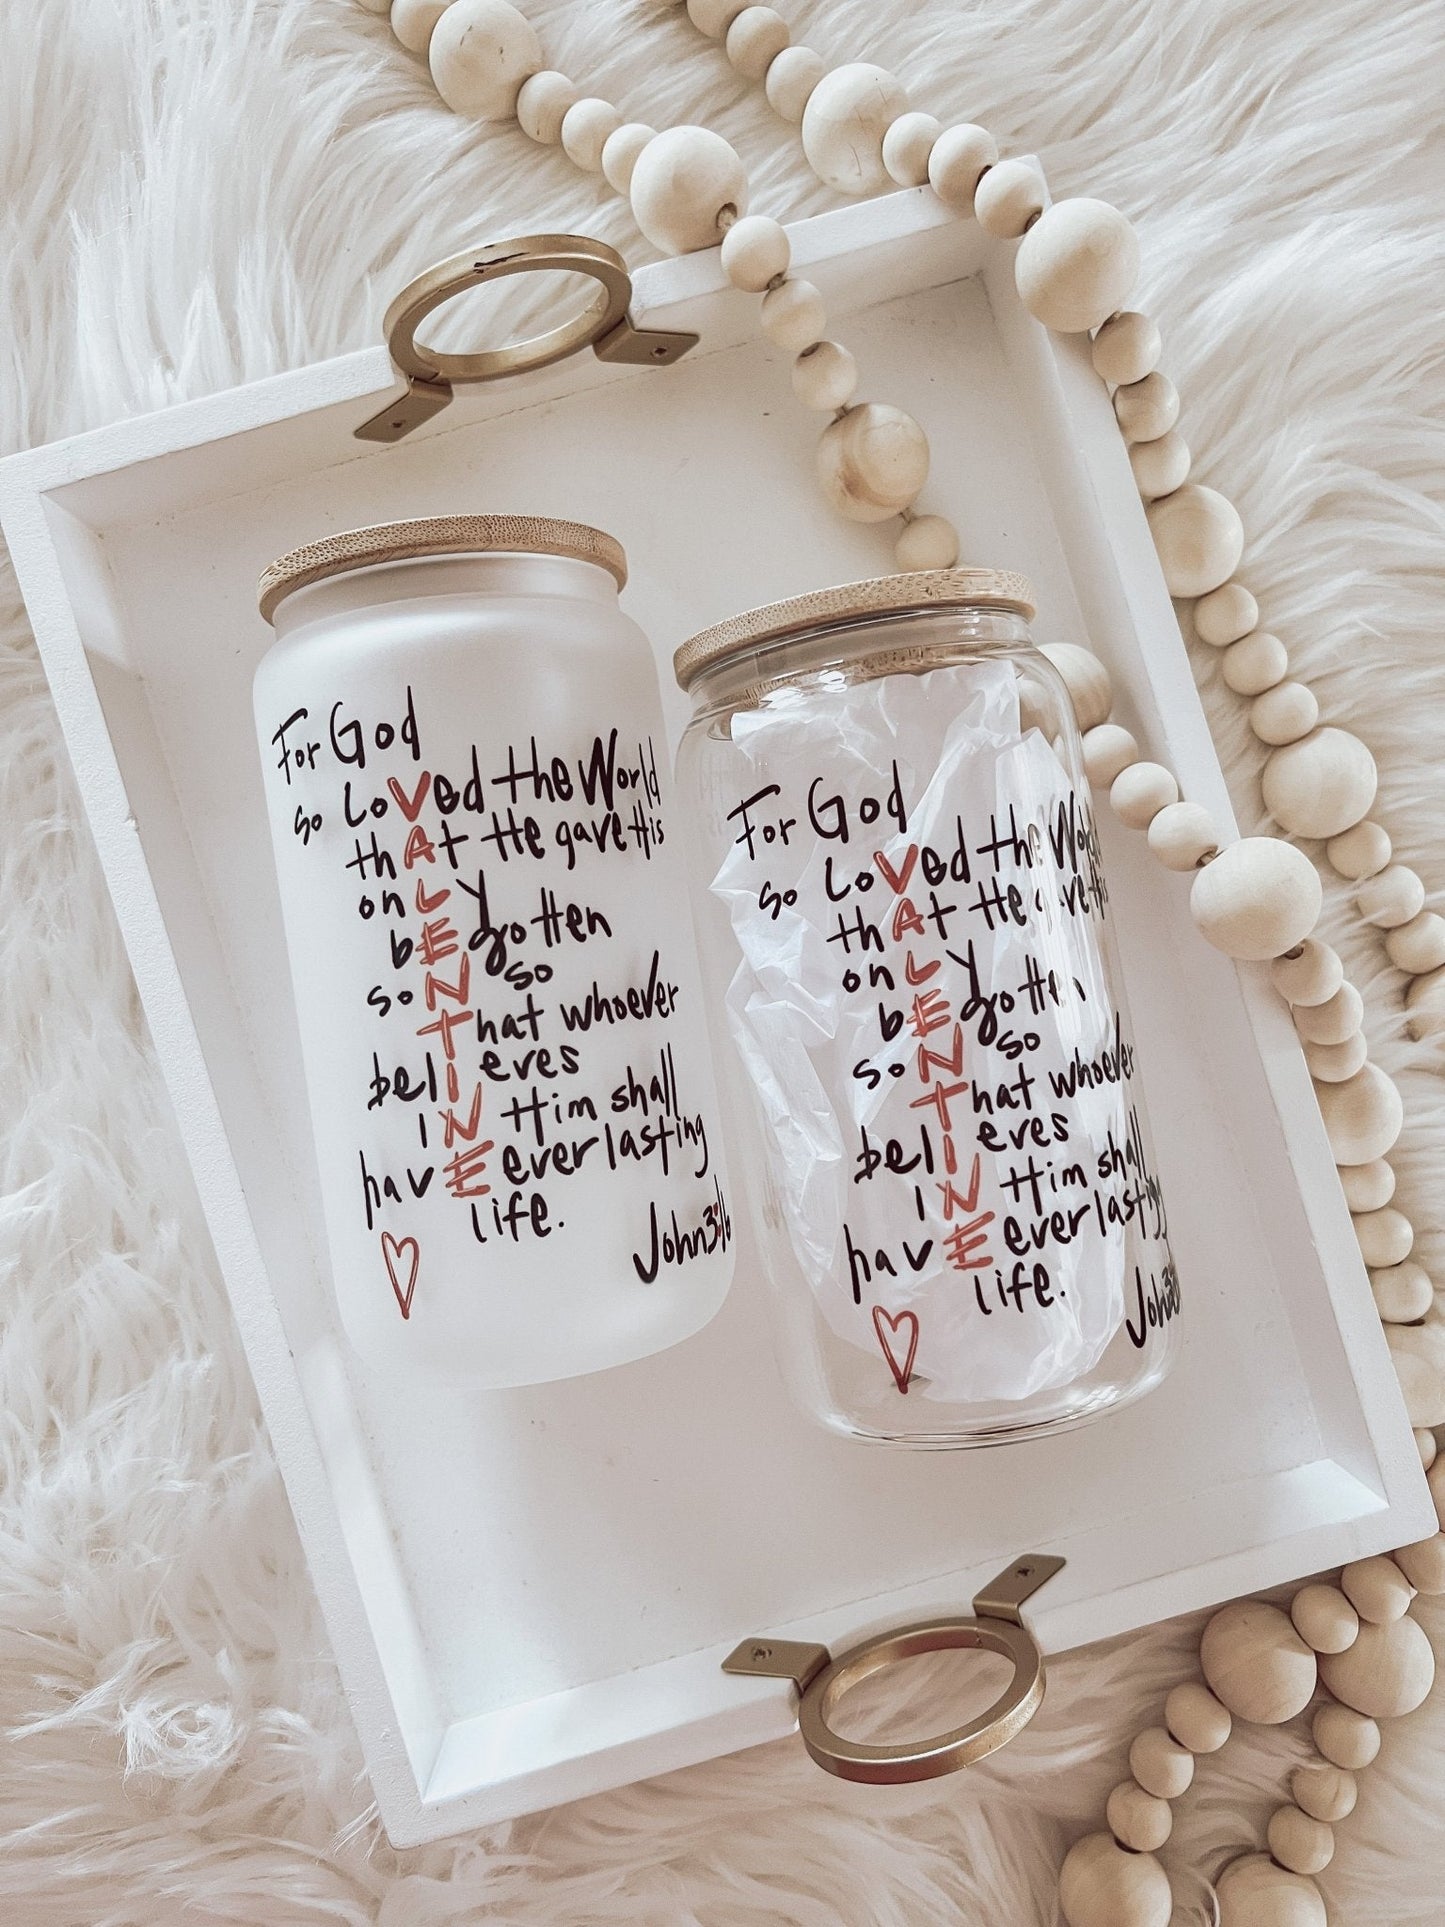 For God
so LoVed the World
thAt He gave His
onLy
bEgotten
soN so
That whoever
belIeves
iN Him shall
havE everlasting
life.
John 3:16
For God
so LoVed the World
thAt He gave His
onLy
bEgotten
soN so
That whoever
belIeves
iN Him shall
havE everlasting
life.
John 3: